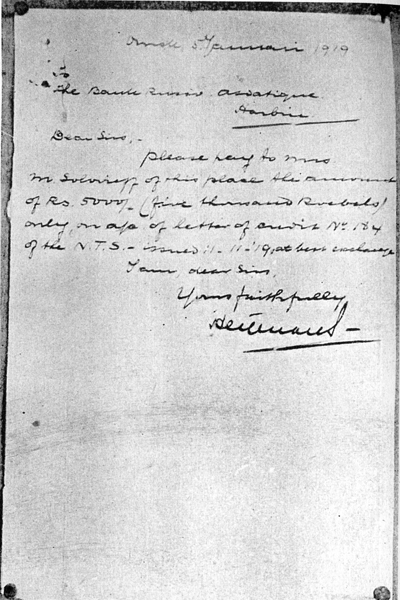 Omsk 5 Januari 1919
To
The Bank Russo Asiatique
Harbin
Dear Sirs,-
Please pay to Mrs
M. Solovieff of this place the amount
of Rs. 5000/- (five thousand Roubels)
only, on a/c of letter of credit No. 184
of the N.T.S. - issued 11-11-19, at best exchange
I am, dear Sirs,
Yours faithfully